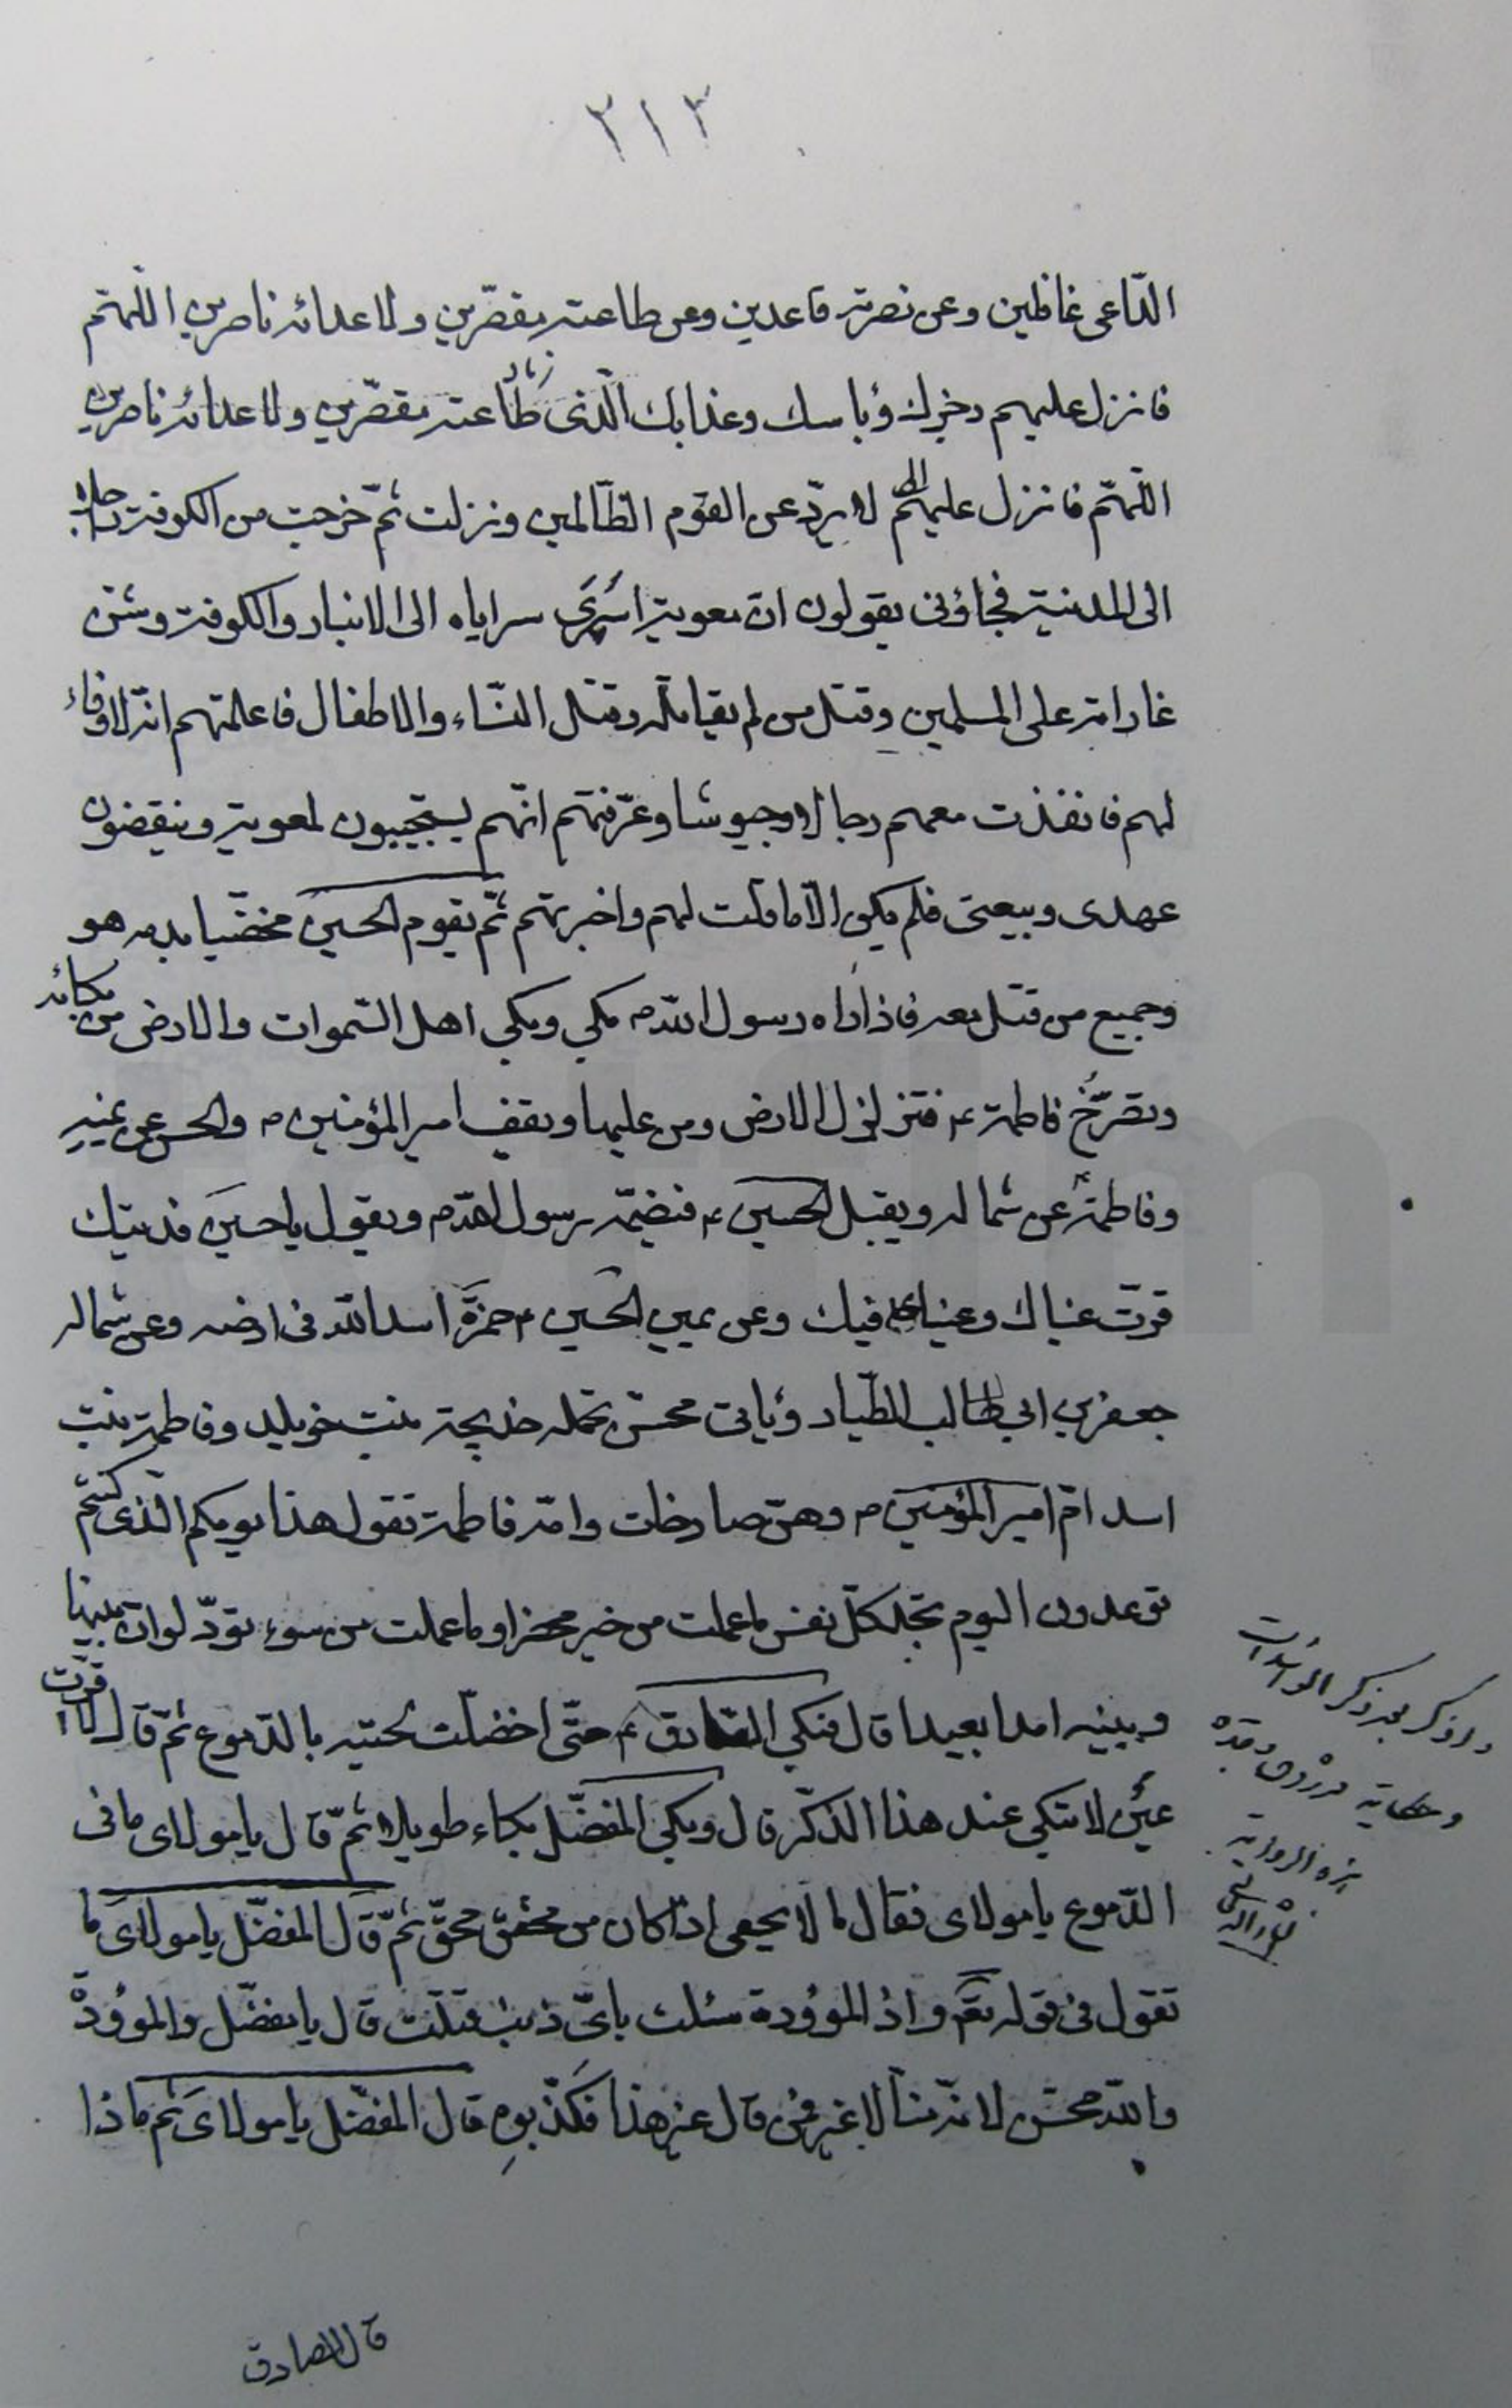 ٢١٣
الدّاعى غافلين وعن نصرته قاعدين وعن طاعته مقصّرين ولاعدائه ناصرين اللّهمّ
فانزل عليهم رجزك وباسك وعذابك الّذى طاعته مقصّرين ولاعدائه ناصرين
اللّهمّ فانزل عليهم لا يردّ عن القوم الظّالمين ونزلت ثمّ خرجت من الكوفة راحلا
الى المدينة فجاؤنى يقولون انّ معوية اسرى سراياه الى الانبار والكوفة وشنّ
غاراته على المسلمين وقتل من لم يقاتله وقتل النّساء والاطفال فاعلمتهم انّه لا وفاء
لهم فانفذت معهم رجالا وجيوشا وعرّفتهم انّهم يستجيبون لمعوية وينقضون
عهدى وبيعتى فلم يكن الّا ما قلت لهم واخبرتهم ثمّ يقوم الحسين مخضّبا بدمه هو
وجميع من قتل معه فاذا راه رسول اللّه ص بكى وبكى اهل السّموات والارض من بكائه
وتصرّخ فاطمة ع فتزلزل الارض ومن عليها ويقف امير المؤمنين ص والحسن عن يمينه
وفاطمة عن شماله ويقبل الحسين ع فيضمّه رسول اللّه ص ويقول يا حسين فديتك
قرّت عيناك وعيناى فيك وعن يمين الحسين ع حمزة اسد اللّه فى ارضه وعن شماله
جعفر بن ابى طالب الطّيار ويأتى محسّن تحمله خديجة بنت خويلد وفاطمة بنت
اسد امّ امير المؤمنين ص وهنّ صارخات وامّه فاطمة تقول هذا يومكم الّذى كنتم
توعدون اليوم تجد كلّ نفس ما عملت من خير محضرا وما عملت من سوء تودّ لو انّ بينها
وبينه امدا بعيدا قال فبكى الصّادق ع حتّى اخضلّت لحيته بالدّموع ثمّ قال لا قرّت
عين لا تبكى عند هذا الذّكر قال وبكى المفضّل بكاء طويلا ثمّ قال يا مولاى ما فى
الدّموع يا مولاى فقال ما لا يحصى اذا كان من محقّ ثمّ قال المفضّل يا مولاى ما
تقول فى قوله تعم واذا الموؤدة سئلت باىّ ذنب قتلت قال يا مفضّل والموؤدة
واللّه محسّن لانّه منّا لا غير فمن قال غير هذا فكذّبوه قال المفضّل يا مولاى ثم ماذا
قال الصادق